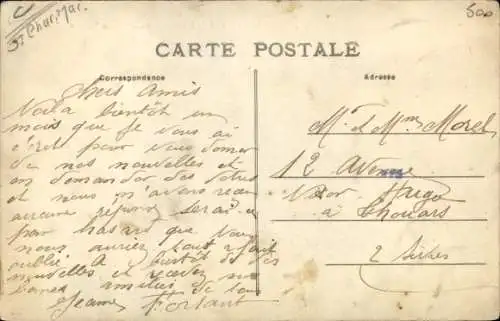 St Char. Mar.
500
CARTE POSTALE
Correspondance
Adresse
Chers Amis
Voila bientôt un
mois que je vous ai
écrit pour vous donner
de nos nouvelles et
en demander des votres
et nous n'avons recu
aucune reponse serai-ce
par hasard que vous
nous auriez tout a fait
oublié. A bientôt de vos
nouvelles et recevez nos
bonnes amities de tous
Jeanne Fortant
Mr et Mme Morel
12 Avenue
Victor Hugo
à Thouars
2 Sèvres